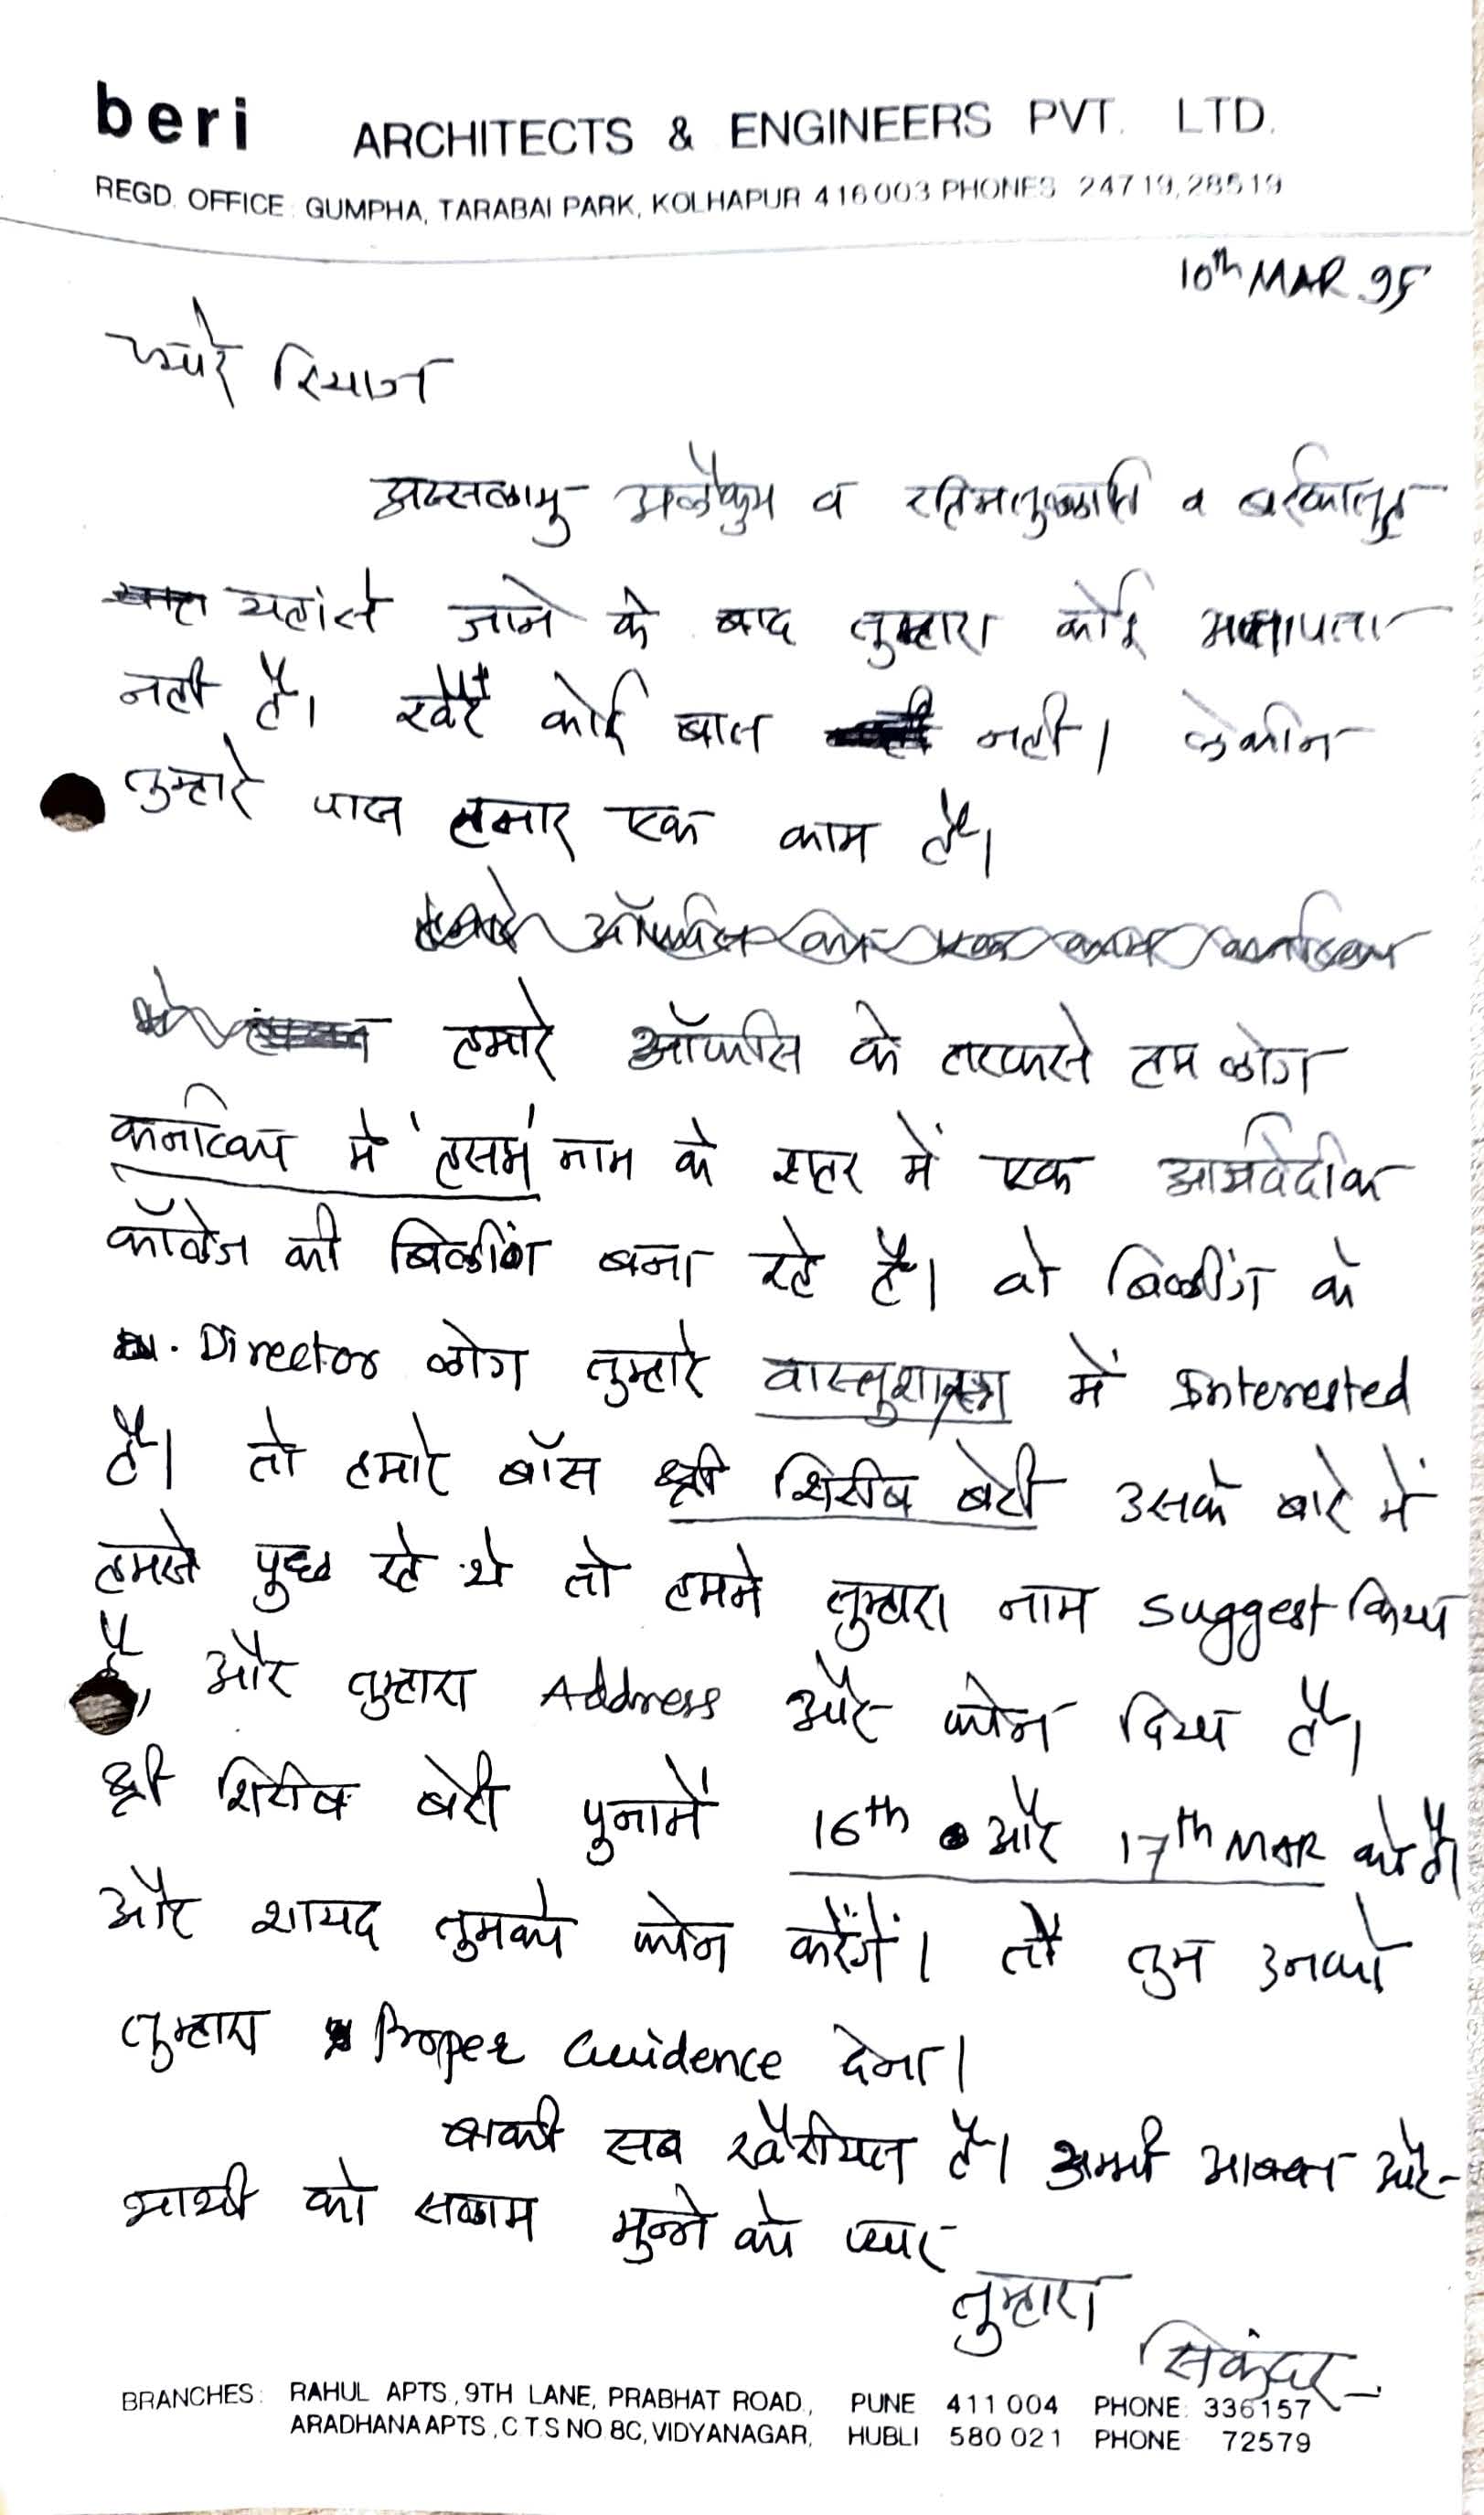 beri ARCHITECTS & ENGINEERS PVT. LTD.
REGD. OFFICE : GUMPHA, TARABAI PARK, KOLHAPUR 416 003 PHONES 24719, 28519
10th MAR. 95
प्यारे रियाज
अस्सलामु अलैकुम व रहिमतुल्लाहि व बरकातुहू
यहांसे जाने के बाद तुम्हारा कोई अत्तापत्ता
नही है। खैर कोई बात नही। लेकीन
तुम्हारे पास हमार एक काम है।
हमारे ऑफीस के तरफसे हम लोग
कर्नाटका मे 'हसम' नाम के शहर में एक आर्युवेदीक
कॉलेज की बिल्डींग बना रहे है। वो बिल्डींग के
Director लोग तुम्हारे वास्तुशास्त्र में Interested
है। तो हमारे बॉस श्री शिरीष बेरी उसके बारे में
हमसे पुछ रहे थे तो हमने तुम्हारा नाम suggest किया
है, और तुम्हारा Address और फोन दिया है।
श्री शिरीष बेरी पुनामें 16th और 17th MAR को है।
और शायद तुमको फोन करेंगें। तो तुम उनको
तुम्हारा Proper Guidence देना।
बाकी सब खैरीयत है। अम्मी अब्बा और
भाभी को सलाम मुन्ने को प्यार
तुम्हारा
सिकंदर
BRANCHES: RAHUL APTS., 9TH LANE, PRABHAT ROAD., PUNE 411 004 PHONE: 336157
ARADHANA APTS., C.T.S NO 8C, VIDYANAGAR, HUBLI 580 021 PHONE 72579